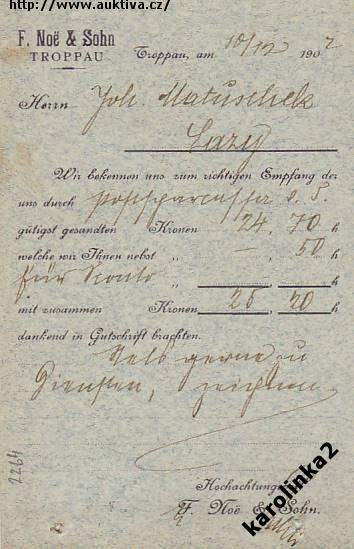 http://www.auktiva.cz/
F. Noë & Sohn
TROPPAU
Troppau, am 10/12 1902
Herrn Joh. Matuschek
Lazy
Wir bekennen uns zum richtigen Empfang der
uns durch Postsparcassa
gütigst gesandten Kronen 24, 70 h
welche wir Ihnen nebst „ 50 h
für Sconto „ h
mit zusammen Kronen 25, 20 h
dankend in Gutschrift brachten.
Stets gerne zu
Diensten, zeichnen
Hochachtungsvoll
F. Noë & Sohn.
2264
karolinka2